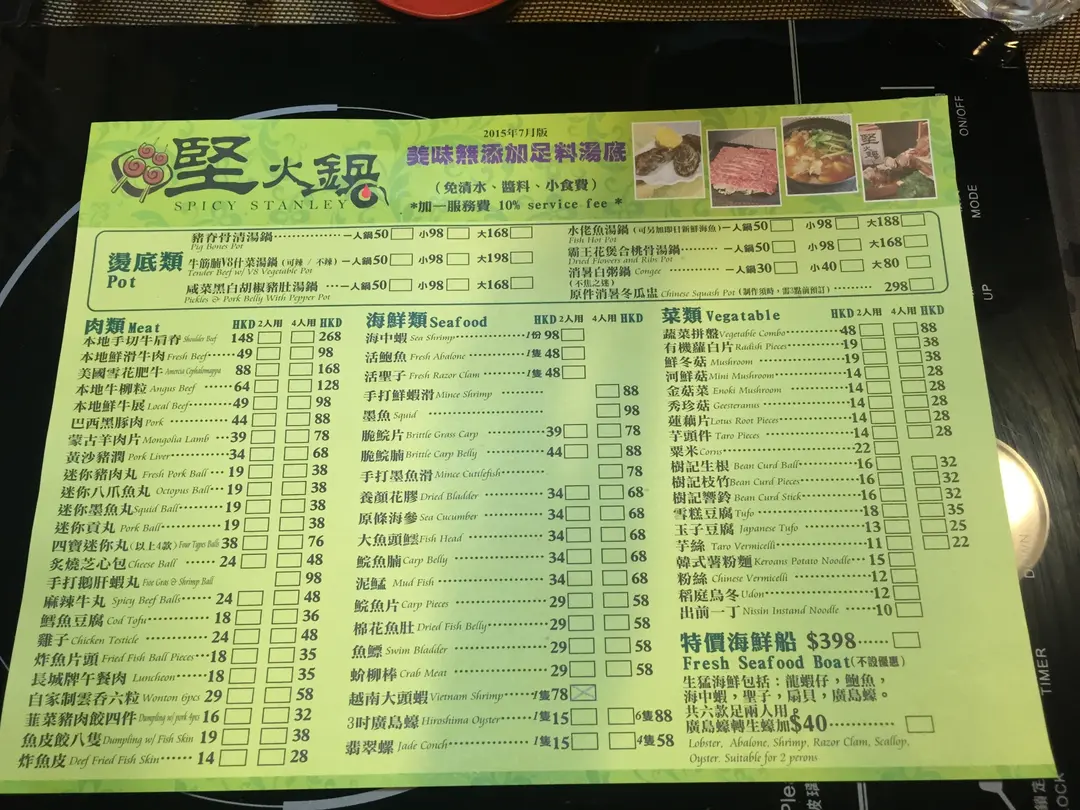 堅火鍋
SPICY STANLEY
2015年7月版
美味無添加足料湯底
（免清水、醬料、小食費）
*加一服務費 10% service fee *
燙底類
Pot
豬脊骨清湯鍋 一人鍋50 小98 大168
Pig Bones Pot
牛筋腩V8什菜湯鍋 (可辣 / 不辣) 一人鍋50 小98 大198
Tender Beef w/ V8 Vegetable Pot
咸菜黑白胡椒豬肚湯鍋 一人鍋50 小98 大168
Pickles & Pork Belly With Pepper Pot
水佬魚湯鍋 (可另加即日新鮮海魚) 一人鍋50 小98 大188
Fish Hot Pot
霸王花煲合桃骨湯鍋 一人鍋50 小98 大168
Dried Flowers and Ribs Pot
消暑白粥鍋 Congee 一人鍋30 小40 大80
(不焦之迷)
原件消暑冬瓜盅 Chinese Squash Pot (制作須時，需3點前預訂) 298
肉類 Meat HKD 2人用 4人用 HKD
本地手切牛肩脊 Shoulder Beef 148 268
本地鮮滑牛肉 Fresh Beef 49 98
美國雪花肥牛 88 168
本地牛柳粒 Angus Beef 64 128
本地鮮牛展 Local Beef 49 98
巴西黑豚肉 Pork 44 88
蒙古羊肉片 Mongolia Lamb 39 78
黃沙豬潤 Pork Liver 34 68
迷你豬肉丸 Fresh Pork Ball 19 38
迷你八爪魚丸 Octopus Ball 19 38
迷你墨魚丸 Squid Ball 19 38
迷你貢丸 Pork Ball 19 38
四寶迷你丸 (以上4款) Four Types Balls 38 76
炙燒芝心包 Cheese Ball 24 48
手打鵝肝蝦丸 Foie Gras & Shrimp Ball 98
麻辣牛丸 Spicy Beef Balls 24 48
鱈魚豆腐 Cod Tofu 18 36
雞子 Chicken Testicle 24 48
炸魚片頭 Fried Fish Ball Pieces 18 35
長城牌午餐肉 Luncheon 18 35
自家制雲呑六粒 Wonton 6pcs 29 58
韮菜豬肉餃四件 Dumpling w/ pork 4pcs 16 32
魚皮餃八隻 Dumpling w/ Fish Skin 19 38
炸魚皮 Deef Fried Fish Skin 14 28
海鮮類 Seafood HKD 2人用 4人用 HKD
海中蝦 Sea Shrimp 1份 98
活鮑魚 Fresh Abalone 1隻 48
活聖子 Fresh Razor Clam 1隻 48
手打鮮蝦滑 Mince Shrimp 88
墨魚 Squid 98
脆鯇片 Brittle Grass Carp 39 78
脆鯇腩 Brittle Carp Belly 44 88
手打墨魚滑 Mince Cuttlefish 78
養顏花膠 Dried Bladder 34 68
原條海參 Sea Cucumber 34 68
大魚頭 Fish Head 34 68
鯇魚腩 Carp Belly 34 68
泥鯭 Mud Fish 34 68
鯇魚片 Carp Pieces 29 58
棉花魚肚 Dried Fish Belly 29 58
魚鰾 Swim Bladder 29 58
蚧柳棒 Crab Meat 29 58
越南大頭蝦 Vietnam Shrimp 1隻 78
3吋廣島蠔 Hiroshima Oyster 1隻 15 6隻 88
翡翠螺 Jade Conch 1隻 15 4隻 58
菜類 Vegatable HKD 2人用 4人用 HKD
蔬菜拼盤 Vegetable Combo 48 88
有機蘿白片 Radish Pieces 19 38
鮮冬菇 Mushroom 19 38
河鮮菇 Mini Mushroom 14 28
金菇菜 Enoki Mushroom 14 28
秀珍菇 Geesteranus 14 28
蓮藕片 Lotus Root Pieces 14 28
芋頭件 Taro Pieces 14 28
粟米 Corns 22
樹記生根 Bean Curd Ball 16 32
樹記枝竹 Bean Curd Pieces 16 32
樹記響鈴 Bean Curd Stick 16 32
雪糕豆腐 Tufo 18 35
玉子豆腐 Japanese Tufo 13 25
芋絲 Taro Vermicelli 11 22
韓式薯粉麵 Keroans Potato Noodle 15
粉絲 Chinese Vermicelli 12
稻庭烏冬 Udon 12
出前一丁 Nissin Instand Noodle 10
特價海鮮船 $398
Fresh Seafood Boat (不設優惠)
生猛海鮮包括：龍蝦仔，鮑魚，
海中蝦，聖子，扇貝，廣島蠔。
共六款足兩人用。
廣島蠔轉生蠔加$40
Lobster, Abalone, Shrimp, Razor Clam, Scallop,
Oyster. Suitable for 2 perons
ON/OFF
MODE
UP
TIMER